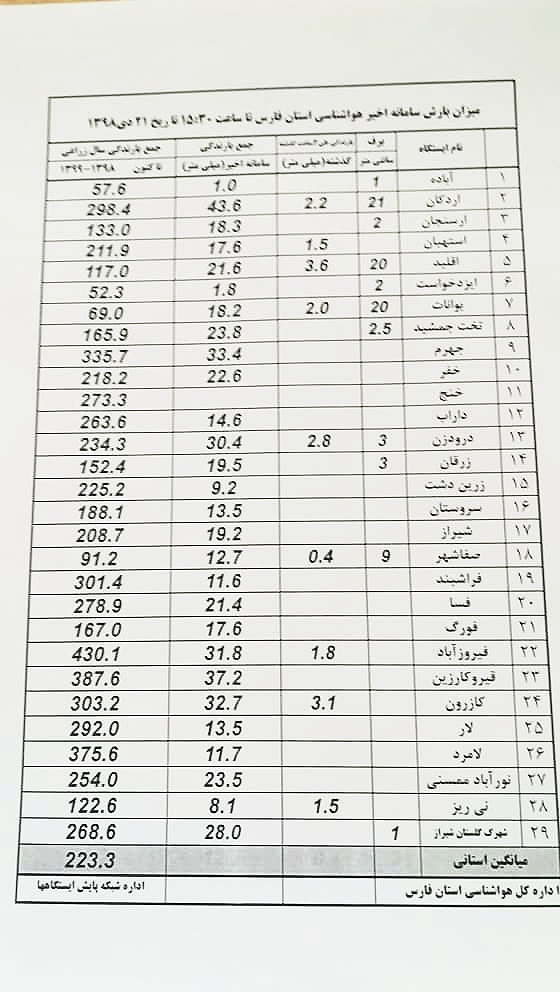 میزان بارش سامانه اخیر هواشناسی استان فارس تا ساعت ۱۵:۳۰ تاریخ ۲۱ دی ۱۳۹۸
نام ایستگاه برف بارندگی جمع بارندگی جمع بارندگی سال زراعی
سانتی متر گذشته(میلی متر) سامانه اخیر(میلی متر) تا کنون ۱۳۹۸-۱۳۹۹
۱ آباده 1 1.0 57.6
۲ اردکان 21 2.2 43.6 298.4
۳ ارسنجان 2 18.3 133.0
۴ استهبان 1.5 17.6 211.9
۵ اقلید 20 3.6 21.6 117.0
۶ ایزدخواست 2 1.8 52.3
۷ بوانات 20 2.0 18.2 69.0
۸ تخت جمشید 2.5 23.8 165.9
۹ جهرم 33.4 335.7
۱۰ خفر 22.6 218.2
۱۱ خنج 273.3
۱۲ داراب 14.6 263.6
۱۳ درودزن 3 2.8 30.4 234.3
۱۴ زرقان 3 19.5 152.4
۱۵ زرین دشت 9.2 225.2
۱۶ سروستان 13.5 188.1
۱۷ شیراز 19.2 208.7
۱۸ صفاشهر 9 0.4 12.7 91.2
۱۹ فراشبند 11.6 301.4
۲۰ فسا 21.4 278.9
۲۱ فورگ 17.6 167.0
۲۲ فیروزآباد 1.8 31.8 430.1
۲۳ قیروکارزین 37.2 387.6
۲۴ کازرون 3.1 32.7 303.2
۲۵ لار 13.5 292.0
۲۶ لامرد 11.7 375.6
۲۷ نورآباد ممسنی 23.5 254.0
۲۸ نی ریز 1.5 8.1 122.6
۲۹ شهرک گلستان شیراز 1 28.0 268.6
میانگین استانی 223.3
اداره کل هواشناسی استان فارس اداره شبکه پایش ایستگاهها